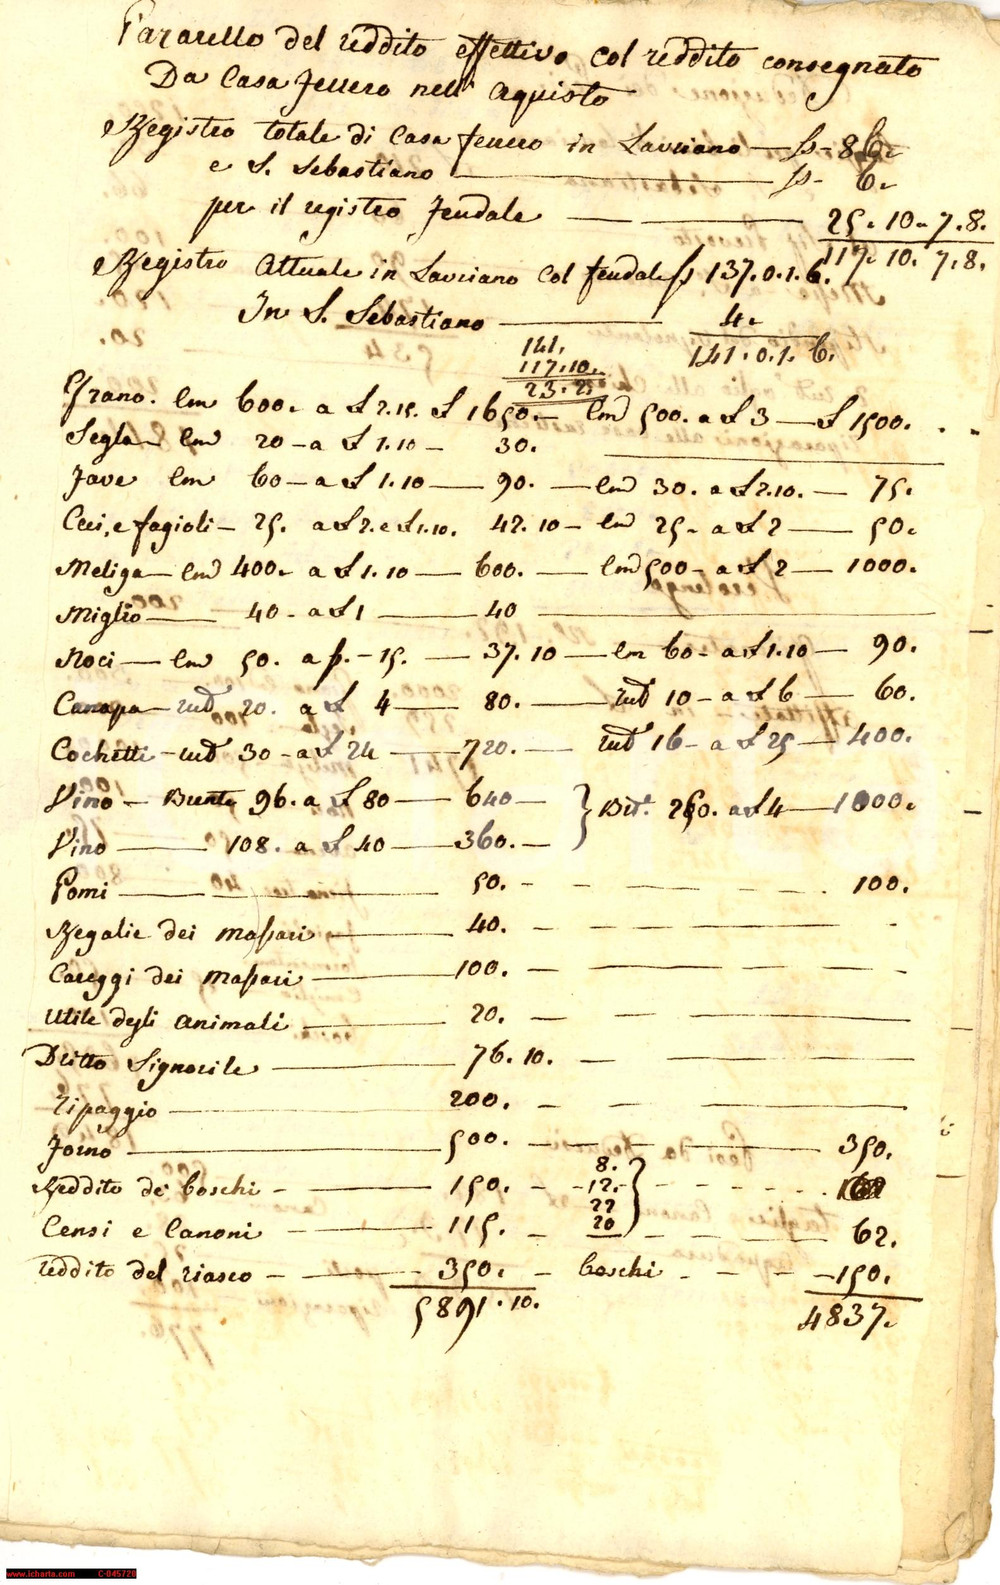 Pararello del reddito effettivo col reddito consegnato
Da Casa Ferrero nell' aquisto
Registro totale di Casa Ferrero in Lauriano — 86.
e S. Sebastiano — 6.
per il registro feudale — 25. 10. 7. 8.
117. 10. 7. 8.
Registro Attuale in Lauriano col feudale 137. 0. 1. 6.
In S. Sebastiano — 4.
141. 0. 1. 6.
141.
117. 10.
23. 2.
Grano. Em 600. a £ 2. 15. £ 1650. — Em 500. a £ 3 — £ 1500.
Segla — Em 20 — a £ 1. 10 — 30.
Fave Em 60 — a £ 1. 10 — 90. — Em 30. a £ 2. 10. — 75.
Ceci, e fagioli — 25. a £ 2. e £ 1. 10. 42. 10 — Em 25 — a £ 2 — 50.
Meliga — Em 400. a £ 1. 10 — 600. — Em 500 — a £ 2 — 1000.
Miglio — 40 — a £ 1 — 40
Noci — Em 50. a — 15. — 37. 10 — Em 60 — a £ 1. 10 — 90.
Canapa — rub 20. a £ 4 — 80. — rub 10 — a £ 6 — 60.
Cochetti — rub 30 — a £ 24 — 720. — rub 16 — a £ 25 — 400.
Vino — Brente 96. a £ 80 — 640 — } 250. a £ 4 — 1000.
Vino — 108. a £ 40 — 360. —
Pomi — 50. — 100.
Regalie dei massari — 40. —
Careggi dei massari — 100. —
Utile degli animali — 20. —
Dritto Signorile — 76. 10. —
Ripaggio — 200. —
Forno — 500. — 350.
Reddito de' boschi — 150. — 8.
12.
22
20 }
Censi e Canoni — 115. — 62.
reddito del riasco — 350. — boschi — 150.
5891. 10. 4837.
www.icharta.com C-045728